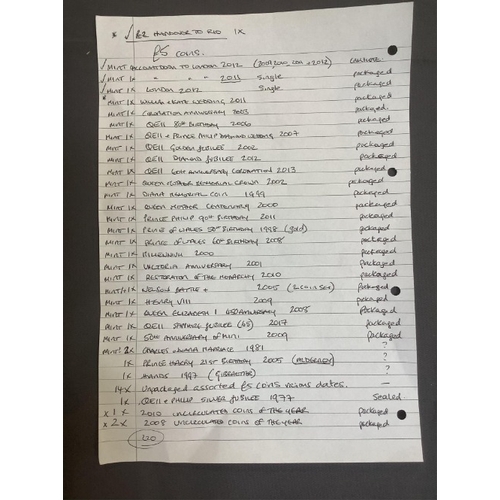 * ✓ £2 HANDOVER TO RIO 1X
£5 COINS.
✓ MINT COUNTDOWN TO LONDON 2012 (2009, 2010, 2011 + 2012) packaged
✓ MINT 1X " " " 2011 Single packaged
✓ MINT 1X LONDON 2012 Single packaged
MINT 1X WILLIAM & KATE WEDDING 2011 packaged
MINT 1X CORONATION ANNIVERSARY 2003 packaged.
MINT 1X QEII 80th BIRTHDAY 2006 packaged
MINT 1X QEII + PRINCE PHILIP DIAMOND WEDDING 2007 packaged
MINT 1X QEII GOLDEN JUBILEE 2002 packaged
MINT 1X QEII DIAMOND JUBILEE 2012 packaged
MINT 1X QEII 60th ANNIVERSARY CORONATION 2013 packaged
MINT 1X QUEEN MOTHER MEMORIAL CROWN 2002 packaged
MINT 1X DIANA MEMORIAL COIN 1999 packaged
MINT 1X QUEEN MOTHER CENTENARY 2000 packaged
MINT 1X PRINCE PHILIP 90th BIRTHDAY 2011 packaged
MINT 1X PRINCE OF WALES 50th BIRTHDAY 1998 (gold) packaged
MINT 1X PRINCE OF WALES 60th BIRTHDAY 2008 packaged
MINT 1X MILLENNIUM 2000 packaged
MINT 1X VICTORIA ANNIVERSARY 2001 packaged
MINT 1X RESTORATION OF THE MONARCHY 2010 packaged
MINT 1X NELSON BATTLE + 2005 packaged
MINT 1X HENRY VIII 2009 packaged
MINT 1X QUEEN ELIZABETH I 450 ANNIVERSARY 2008 packaged
MINT 1X QEII SAPPHIRE JUBILEE (65) 2017 packaged
MINT 1X 500th ANNIVERSARY OF 2009 packaged
MINT 2X CHARLES + DIANA MARRIAGE 1981 ?
1X PRINCE HARRY 21ST BIRTHDAY 2005 (ALDERNEY) ?
1X HANDS 1997 (GIBRALTAR) ?
14X Unpackaged assorted £5 coins various dates. –
1X QEII + PHILIP SILVER JUBILEE 1977 Sealed.
x 1X 2010 UNCIRCULATED COINS OF THE YEAR packaged
x 2X 2008 UNCIRCULATED COINS OF THE YEAR packaged
120